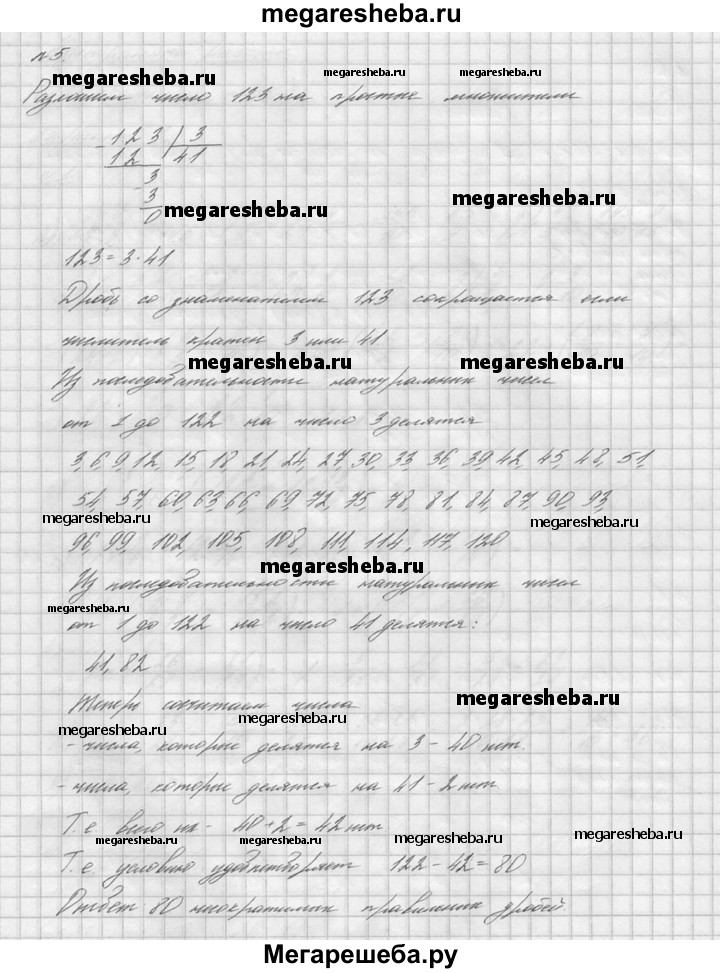 megaresheba.ru
№5.
megaresheba.ru megaresheba.ru megaresheba.ru
Разложим число 123 на простые множители
123 | 3
12 41
3
3
0
megaresheba.ru megaresheba.ru
123 = 3 · 41
Дробь со знаменателем 123 сокращается если
числитель кратен 3 или 41
megaresheba.ru megaresheba.ru
Из последовательности натуральных чисел
от 1 до 122 на число 3 делятся
3, 6, 9, 12, 15, 18, 21, 24, 27, 30, 33, 36, 39, 42, 45, 48, 51,
54, 57, 60, 63, 66, 69, 72, 75, 78, 81, 84, 87, 90, 93,
megaresheba.ru megaresheba.ru
96, 99, 102, 105, 108, 111, 114, 117, 120
megaresheba.ru
Из последовательности натуральных чисел
megaresheba.ru megaresheba.ru
от 1 до 122 на число 41 делятся:
41, 82
Теперь сочитаем числа
megaresheba.ru megaresheba.ru megaresheba.ru
- числа, которые делятся на 3 - 40 шт.
- числа, которые делятся на 41 - 2 шт.
Т.е. всего их - 40 + 2 = 42 шт
megaresheba.ru megaresheba.ru megaresheba.ru
Т.е. условию удовлетворяет 122 - 42 = 80
Ответ: 80 несократимых правильных дробей.
Мегарешеба.ру